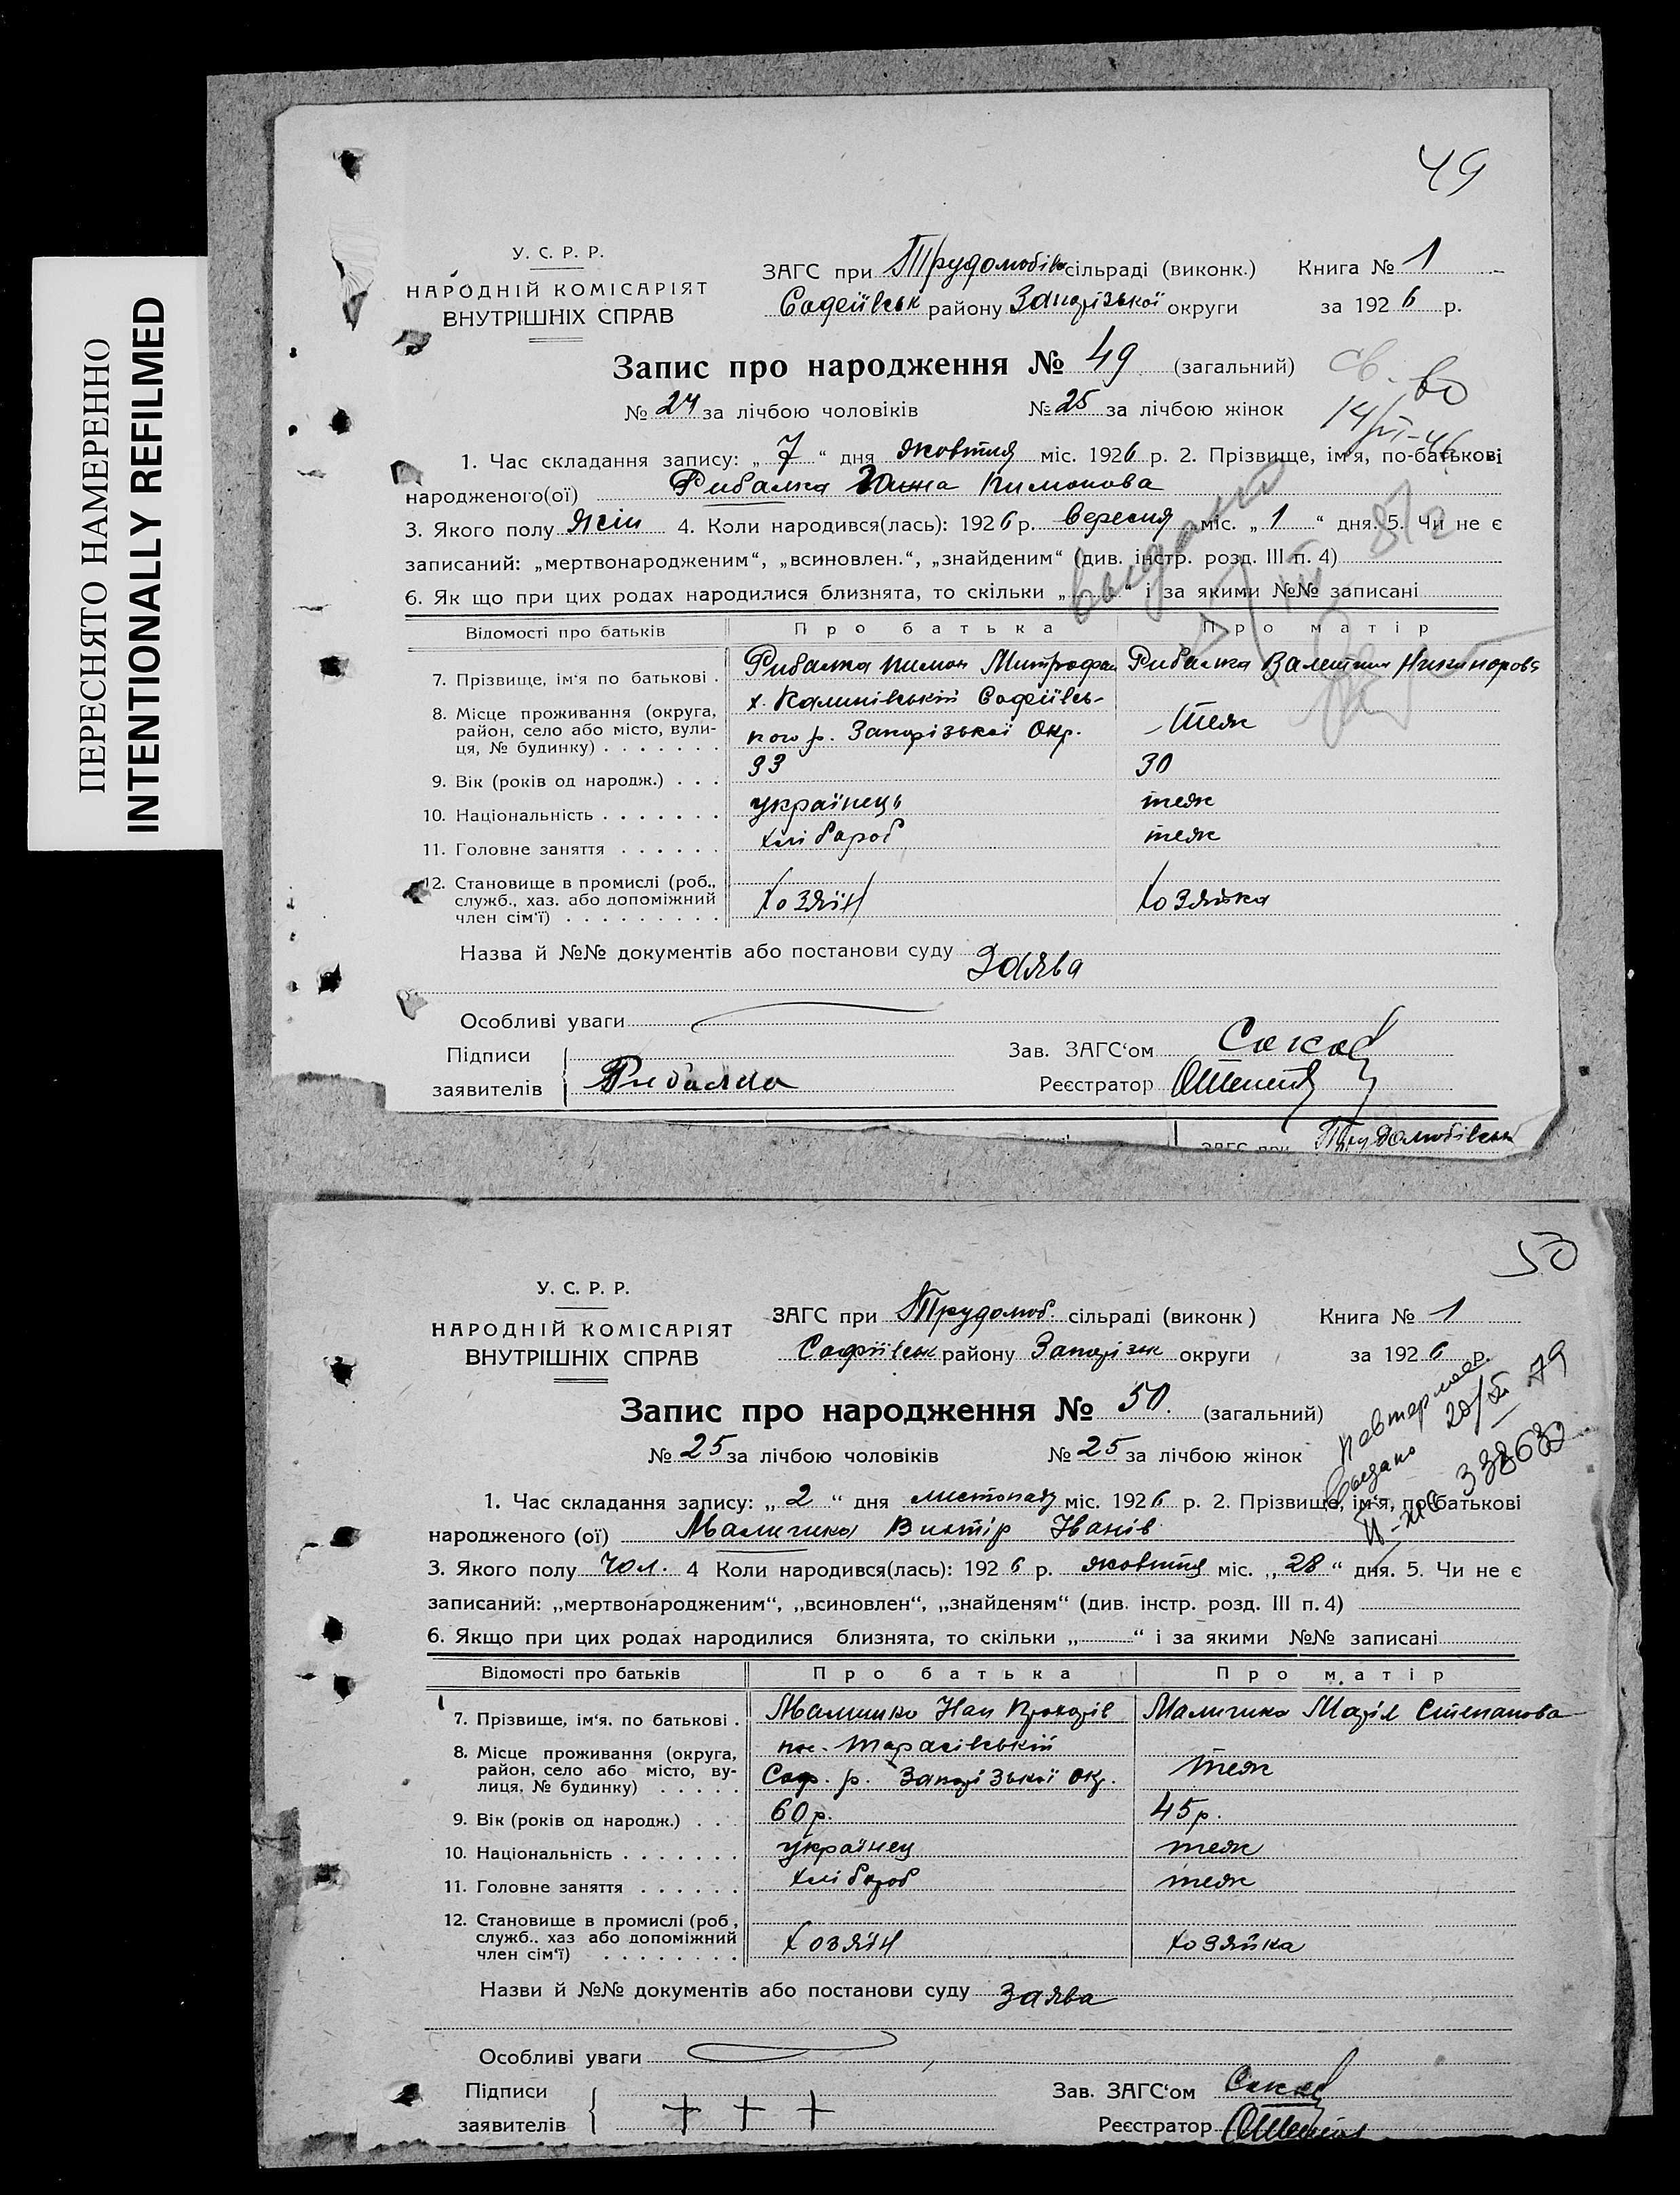 ПЕРЕСНЯТО НАМЕРЕННО
INTENTIONALLY REFILMED
49
У. С. Р. Р.
НАРОДНІЙ КОМІСАРІЯТ
ВНУТРІШНІХ СПРАВ
ЗАГС при Трудолюбівс сільраді (виконк.) Книга № 1
Софіївськ району Запорізької округи за 1926 р.
Запис про народження № 49 (загальний)
№ 24 за лічбою чоловіків № 25 за лічбою жінок
1. Час складання запису: „ 7 “ дня жовтня міс. 1926 р. 2. Прізвище, ім‘я, по-батькові
народженого(ої) Рибалка Пимонова
3. Якого полу Жін 4. Коли народився(лась): 1926 р. вересня міс. „ 1 “ дня. 5. Чи не є
записаний: „мертвонародженим“, „всиновлен.“, „знайденим“ (див. інстр. розд. III п. 4)
6. Як що при цих родах народилися близнята, то скільки „ “ і за якими №№ записані
выдано
Відомості про батьків Про батька Про матір
7. Прізвище, ім‘я по батькові . Рибалка Пимон Митрофан Рибалка Валентина Никифорова
8. Місце проживання (округа, район, село або місто, вулиця, № будинку) х. Калинівський Софіївсь-
кого р. Запорізької Окр. теж
9. Вік (років од народж.) . . . 33 30
10. Національність . . . . . . . українець теж
11. Головне заняття . . . . . . хлібороб теж
12. Становище в промислі (роб., служб., хаз. або допоміжний член сім‘ї) . . . . . . . . . хозяїн хозяйка
Назва й №№ документів або постанови суду Заява
Особливі уваги
Підписи
заявителів Рибалка
Зав. ЗАГС‘ом
Реєстратор
ЗАГС при Трудолюбівськ
50
У. С. Р. Р.
НАРОДНІЙ КОМІСАРІЯТ
ВНУТРІШНІХ СПРАВ
ЗАГС при Трудолюб. сільраді (виконк ) Книга № 1
Софіївськ району Запорізьк округи за 1926 р.
Запис про народження № 50. (загальний)
повторное
выдано 20/XI 79
338632
№ 25 за лічбою чоловіків № 25 за лічбою жінок
1. Час складання запису: „ 2 “ дня листопаду міс. 1926 р. 2. Прізвище, ім‘я, по батькові
народженого (ої) Малишко Віктір Іванів
3. Якого полу чол. 4 Коли народився(лась): 1926 р. жовтня міс. „ 28 “ дня. 5. Чи не є
записаний: „мертвонародженим“, „всиновлен“, „знайденям“ (див. інстр. розд. III п. 4)
6. Якщо при цих родах народилися близнята, то скільки „ “ і за якими №№ записані
Відомості про батьків Про батька Про матір
7. Прізвище, ім‘я. по батькові . Малишко Іван Малишко Марія Степанова
8. Місце проживання (округа, район, село або місто, вулиця, № будинку) . . . . . пос. Тарасівський
Соф. р. Запорізької окр. теж
9. Вік (років од народж.) . . . 60 р. 45 р.
10. Національність . . . . . . . українец теж
11. Головне заняття . . . . . . хлібороб теж
12. Становище в промислі (роб , служб.. хаз або допоміжний член сім‘ї) . . . . . . . . хозяїн хозяйка
Назви й №№ документів або постанови суду Заява
Особливі уваги
Підписи
заявителів + + +
Зав. ЗАГС‘ом
Реєстратор